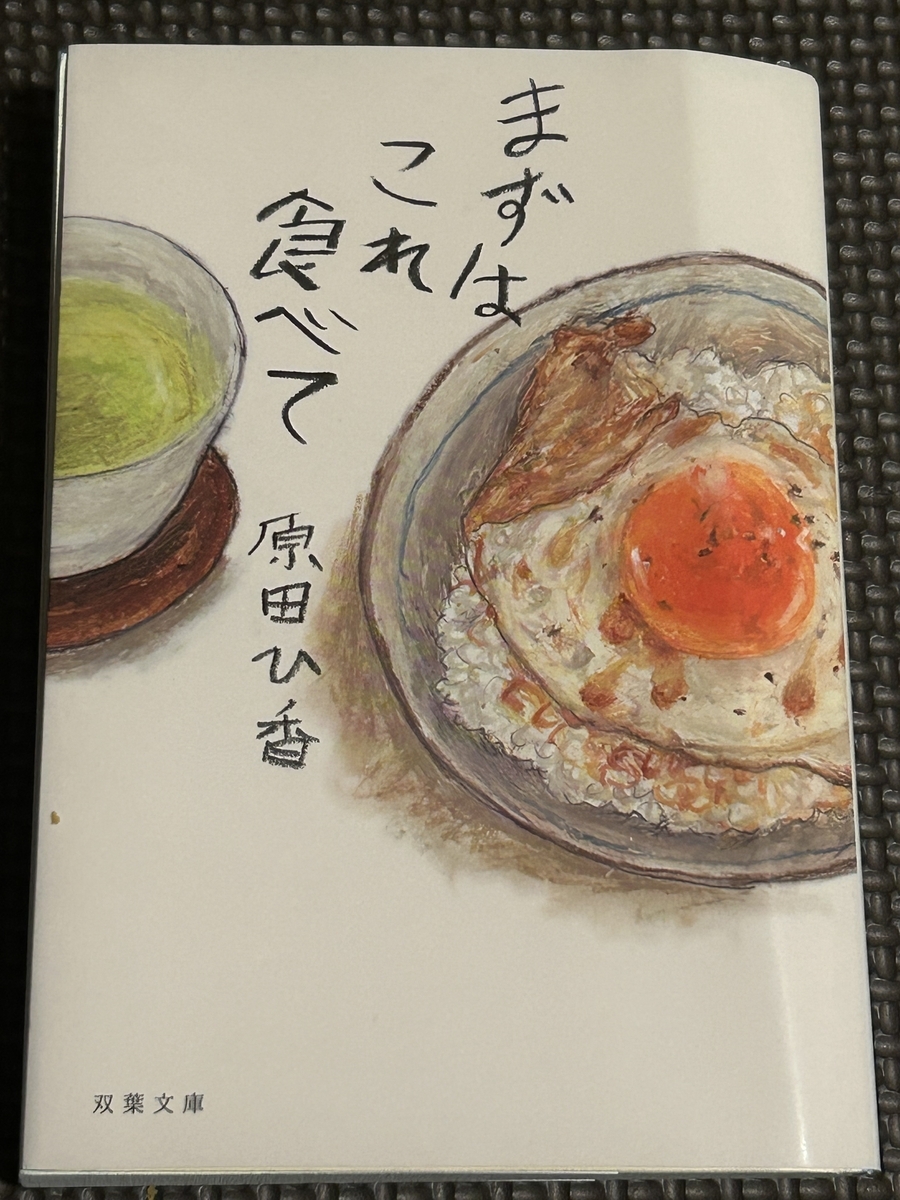 まずは
これ
食べて
原田ひ香
双葉文庫